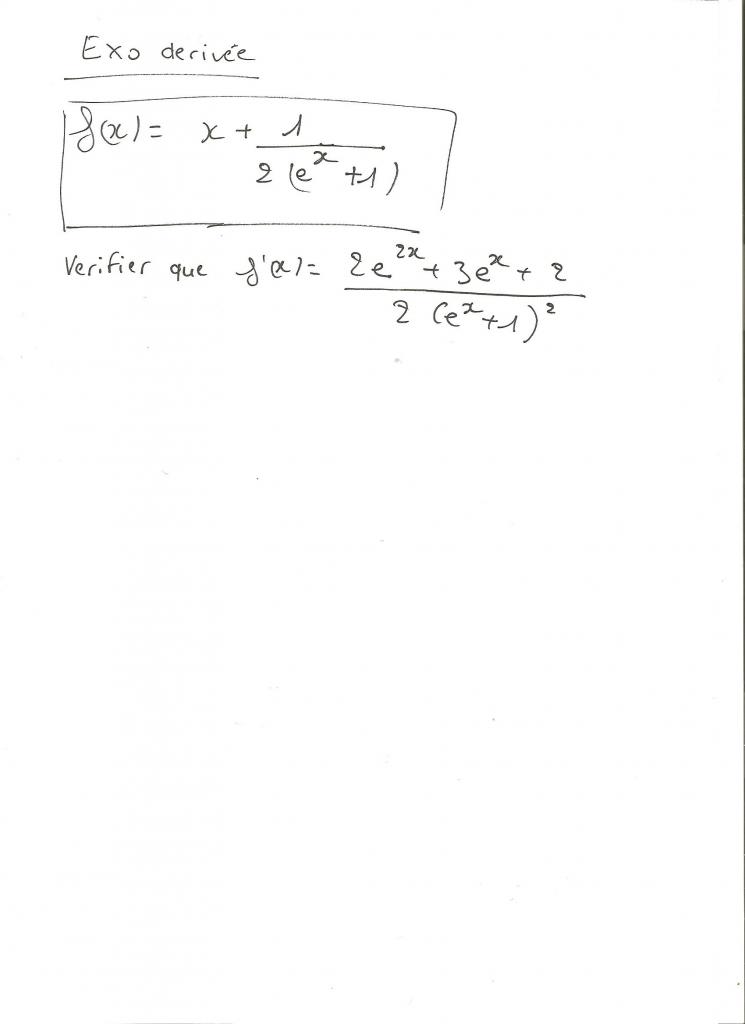 Exo derivée
f(x) = x + 1 / 2 (e^x + 1)
Verifier que f'(x) = 2e^2x + 3e^x + 2 / 2 (e^x + 1)^2